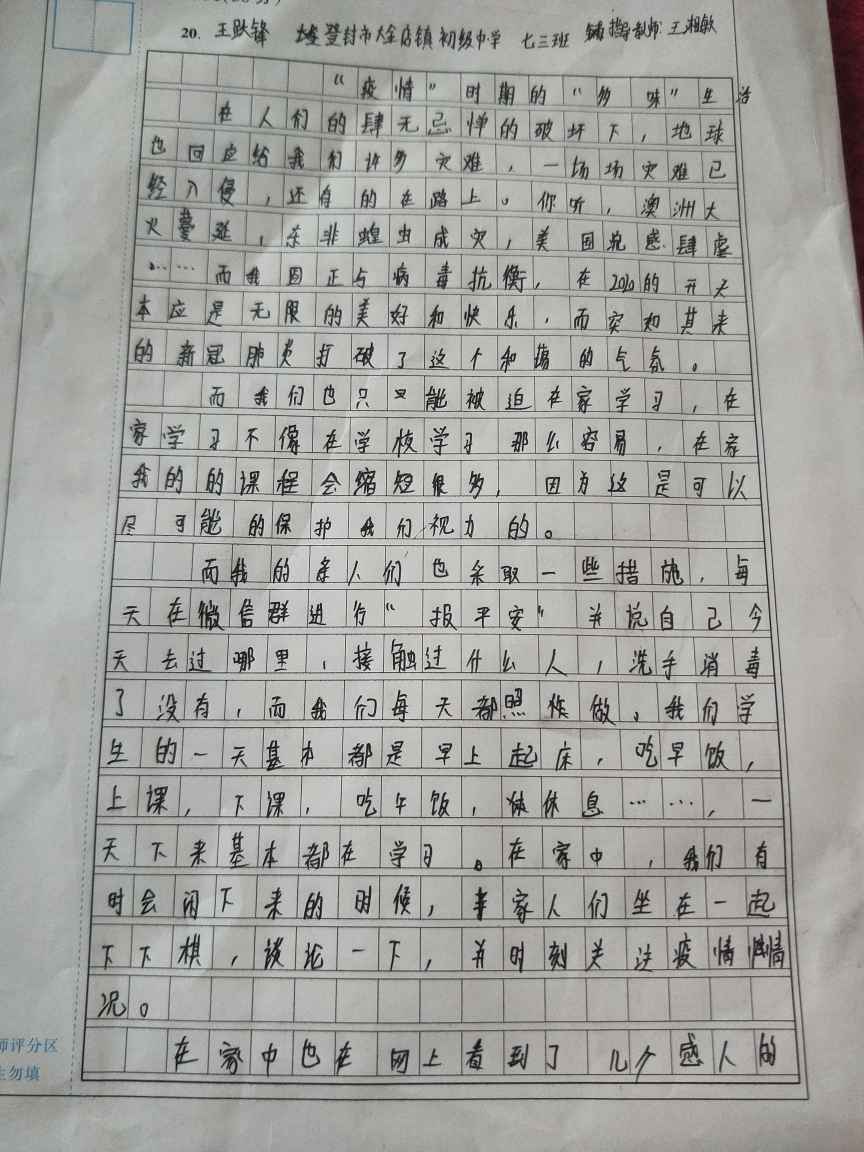 20. 王跃锋 登封市大金店镇初级中学 七三班 指导教师 王湘敏
“疫情”时期的“多味”生活
在人们的肆无忌惮的破坏下，地球
也回应给我们许多灾难，一场场灾难已
经入侵，还有的在路上。你听，澳洲大
火蔓延，东非蝗虫成灾，美国流感肆虐
……而我国正与病毒抗衡，在2020的开天
本应是无限的美好和快乐，而突如其来
的新冠肺炎打破了这个和蔼的气氛。
而我们也只能被迫在家学习，在
家学习不像在学校学习那么容易，在家
我的的课程会缩短很多，因为这是可以
尽可能的保护我们视力的。
而我的亲人们也采取一些措施，每
天在微信群进行“报平安”并说自己今
天去过哪里，接触过什么人，洗手消毒
了没有，而我们每天都照样做。我们学
生的一天基本都是早上起床，吃早饭，
上课，下课，吃午饭，休息……，一
天下来基本都在学习。在家中，我们有
时会闲下来的时候，家人们坐在一起
下下棋，谈论一下，并时刻关注疫情情
况。
在家中也在网上看到了几个感人的
师评分区
生勿填